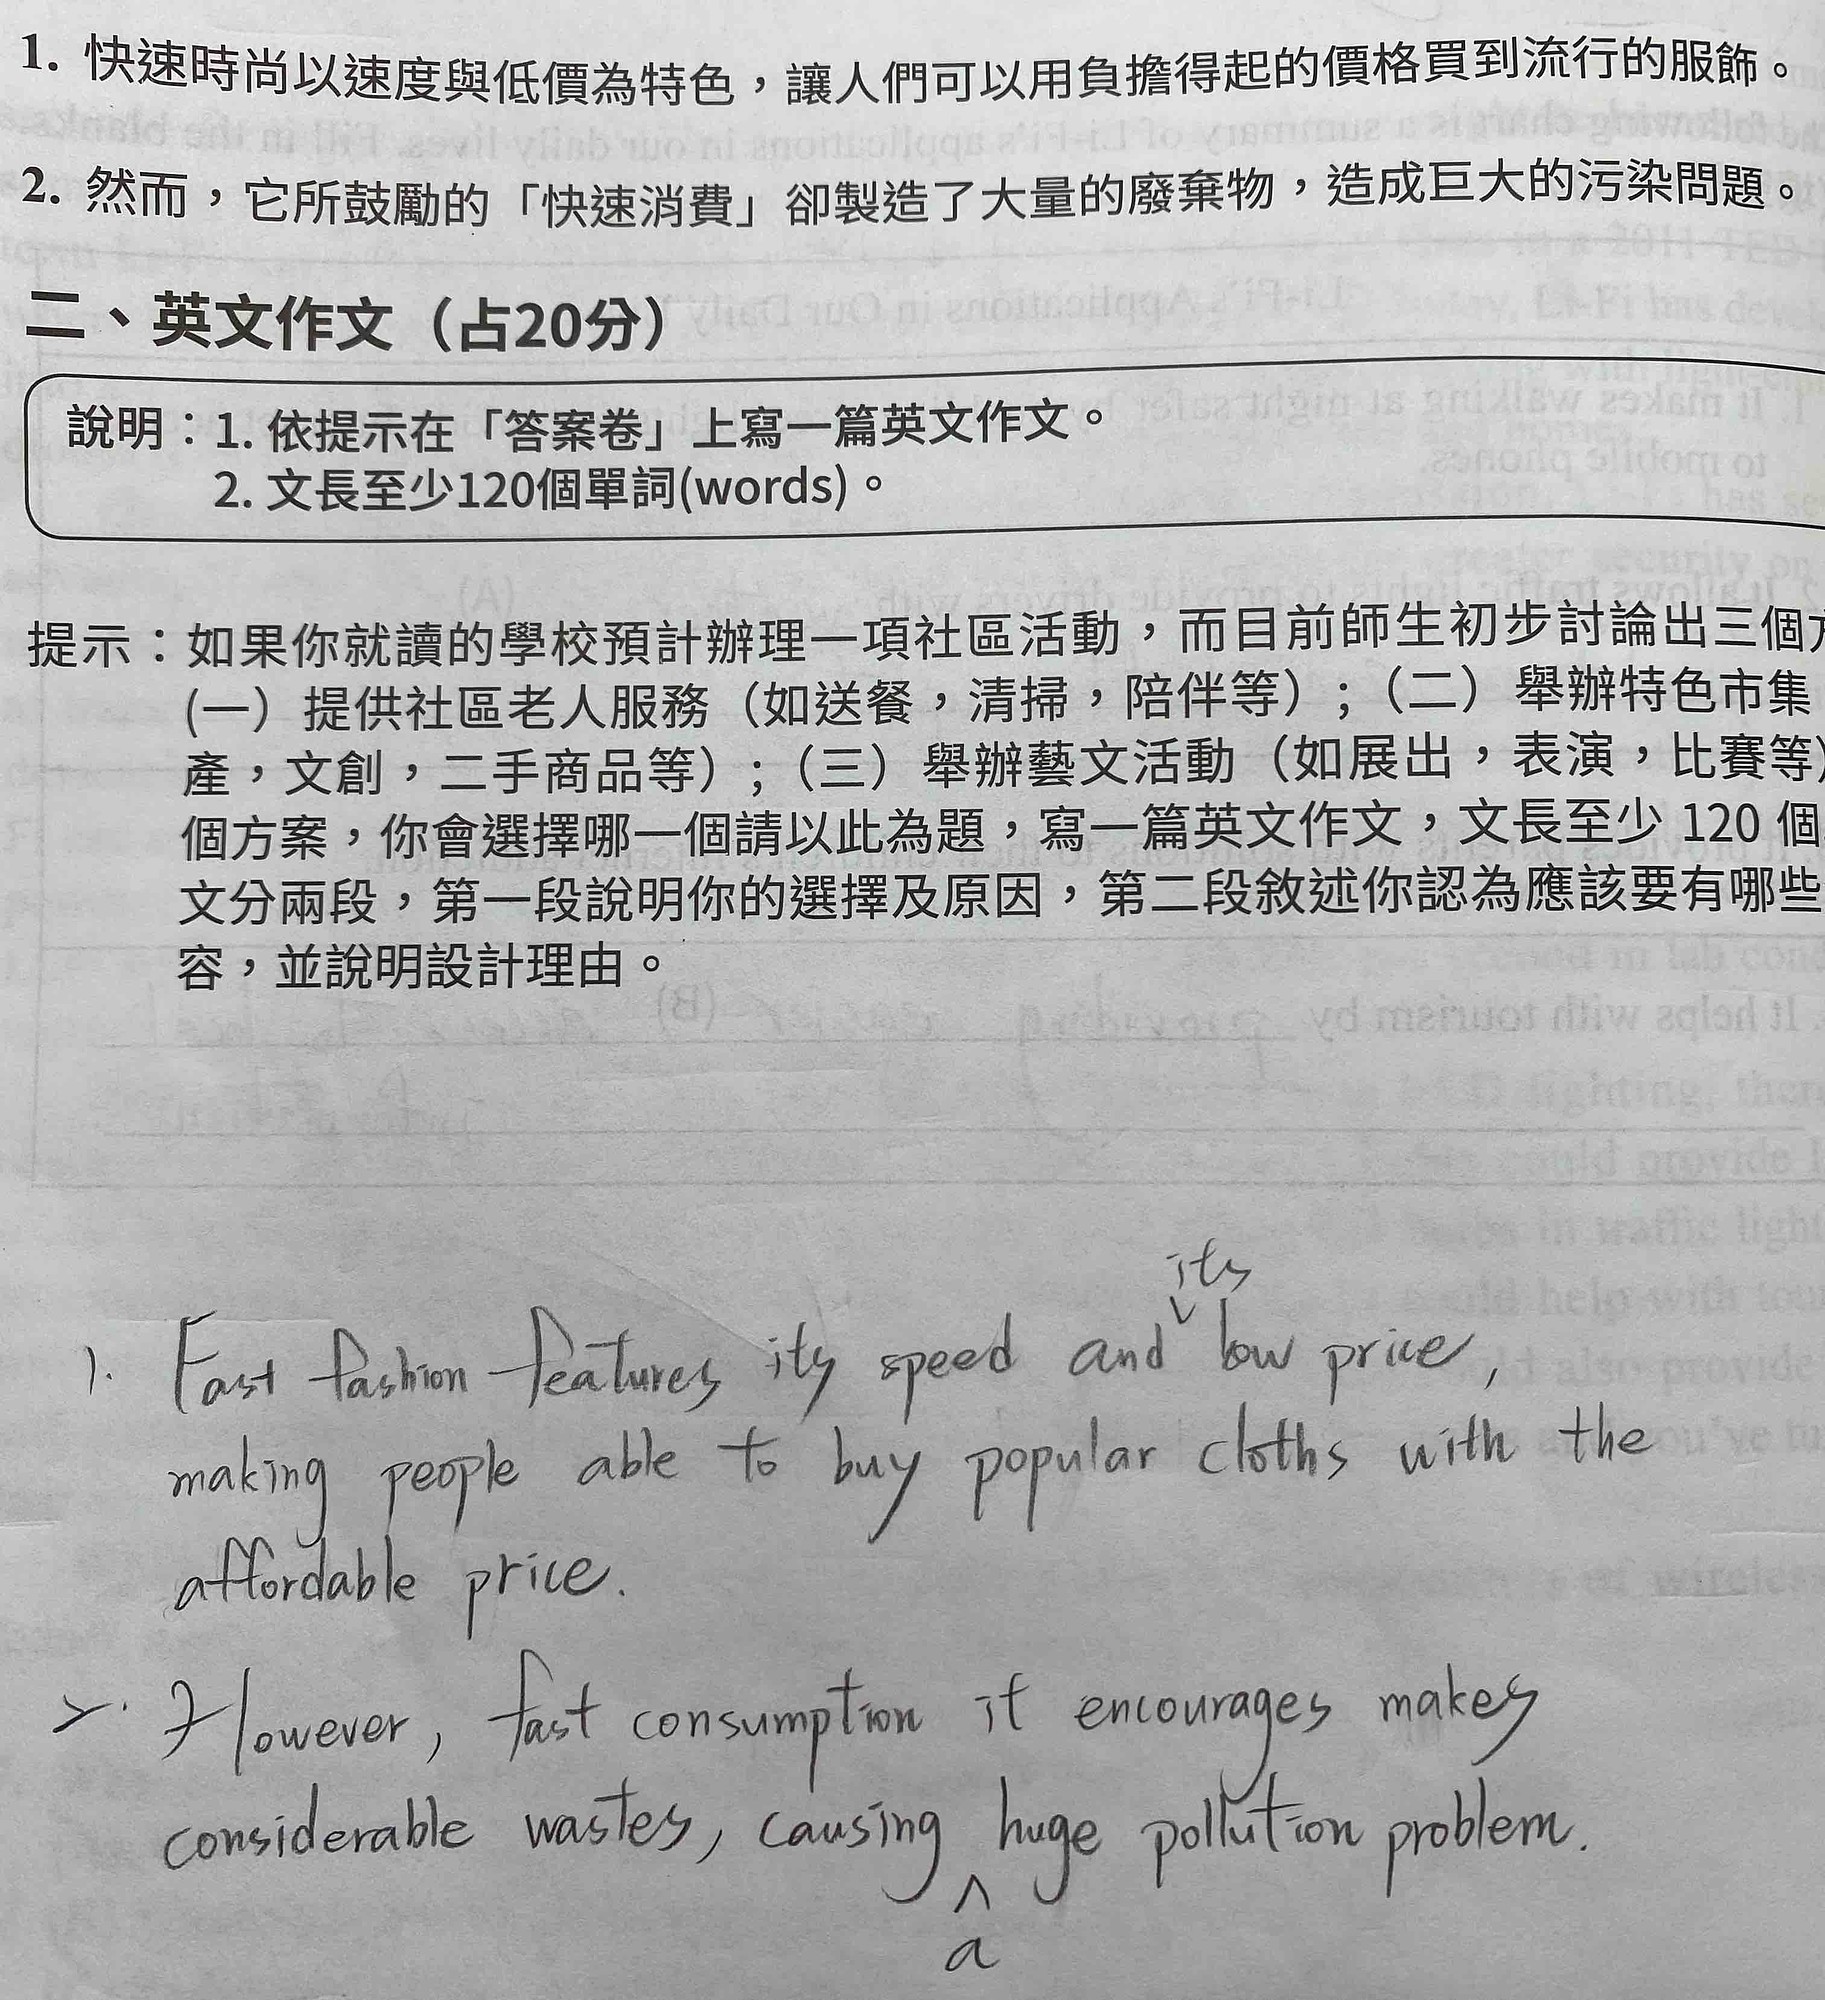 1. 快速時尚以速度與低價為特色，讓人們可以用負擔得起的價格買到流行的服飾。
2. 然而，它所鼓勵的「快速消費」卻製造了大量的廢棄物，造成巨大的污染問題。
二、英文作文（占20分）
說明：1. 依提示在「答案卷」上寫一篇英文作文。
2. 文長至少120個單詞(words)。
提示：如果你就讀的學校預計辦理一項社區活動，而目前師生初步討論出三個
(一）提供社區老人服務（如送餐，清掃，陪伴等）；（二）舉辦特色市集
產，文創，二手商品等）；（三）舉辦藝文活動（如展出，表演，比賽等）
個方案，你會選擇哪一個請以此為題，寫一篇英文作文，文長至少 120 個
文分兩段，第一段說明你的選擇及原因，第二段敘述你認為應該要有哪些
容，並說明設計理由。
its
1. Fast fashion features its speed and low price,
making people able to buy popular cloths with the
affordable price.
2. However, fast consumption it encourages makes
considerable wastes, causing huge pollution problem.
a